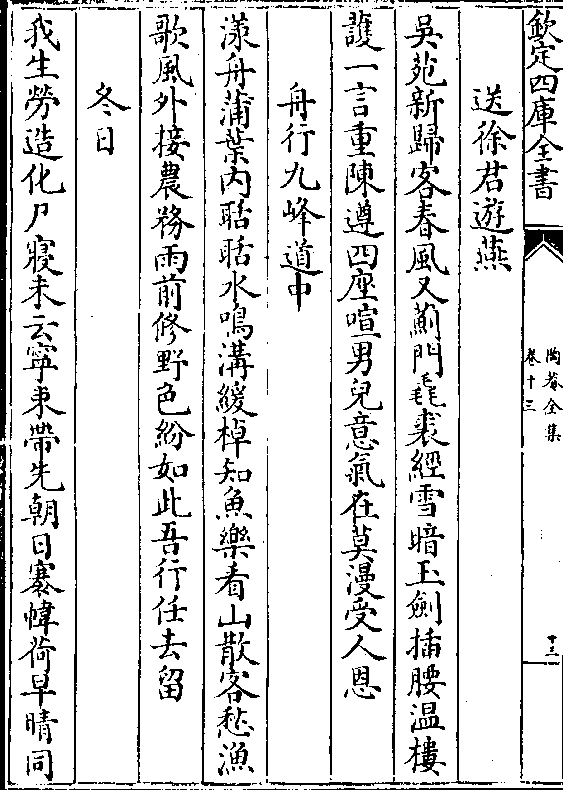 欽定四庫全書
陶菴全集
卷十三
十三
送徐君遊燕
吳苑新歸客春風又薊門毳裘經雪暗玉劍插腰溫樓
護一言重陳遵四座喧男兒意氣在莫漫受人恩
舟行九峰道中
漾舟蒲葉内聒聒水鳴溝緩棹知魚樂看山散客愁漁
歌風外接農務雨前修野色紛如此吾行任去留
冬日
我生勞造化尸寢未云寧束帶先朝日褰幃荷早晴同